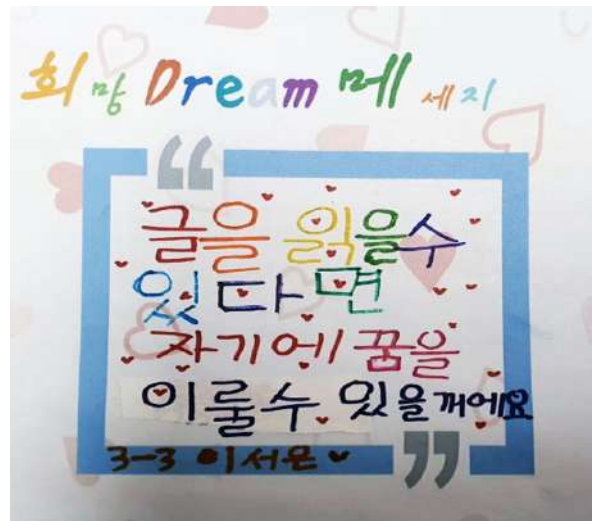 희망 Dream 메세지
“
글을 읽을수
있다면
자기에 꿈을
이룰수 있을꺼에요
3-3 이서은
”